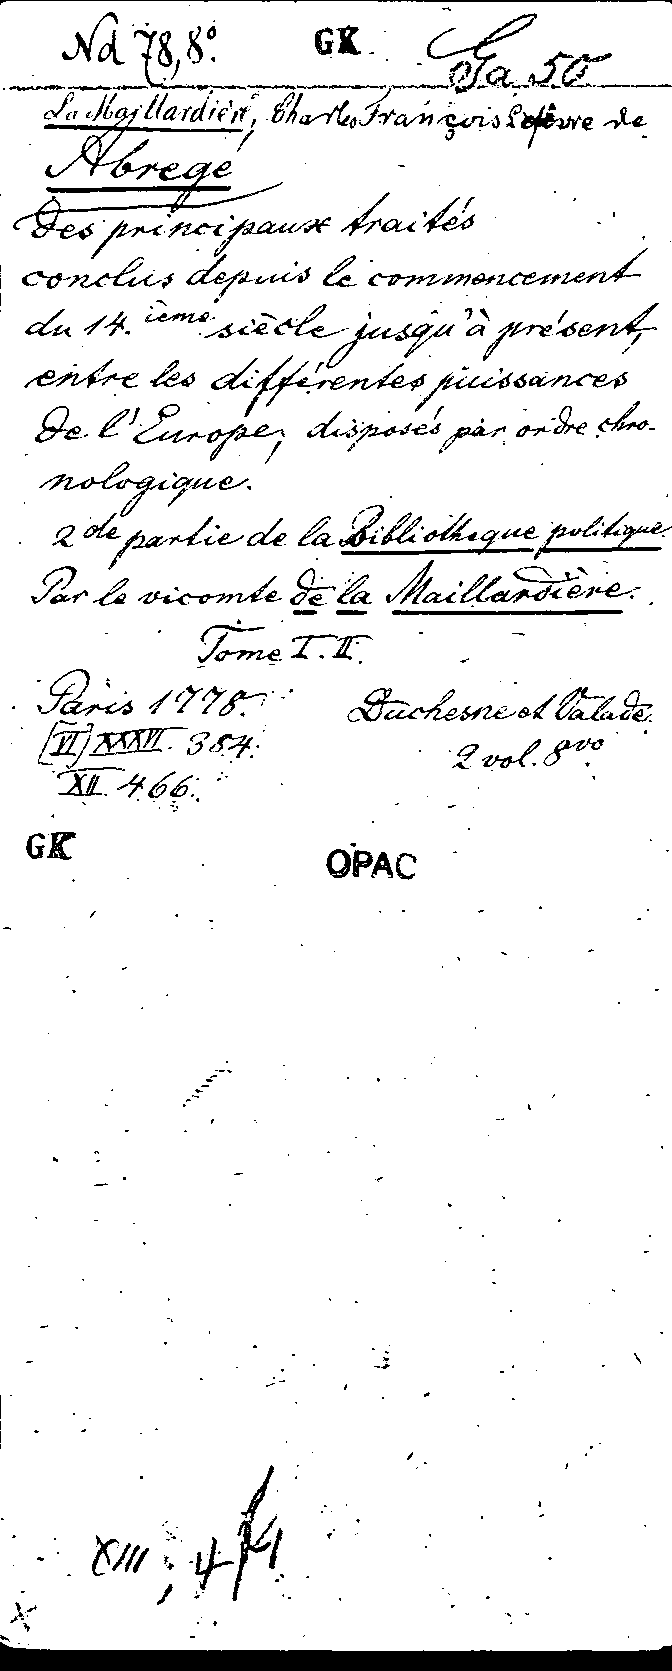 Nd 78,8°. GK Ga 50
La Maillardière, Charles François Lefèvre de
Abregé
des principaux traités
conclus depuis le commencement
du 14.ième siècle jusqu'à présent,
entre les différentes puissances
de l'Europe, disposés par ordre chro-
nologique.
2de partie de la Bibliotheque politique.
Par le vicomte de la Maillardière.
Tome I. II.
Paris 1778. Duchesne et Valade.
[VI] XXXVI. 384. 2 vol. 8vo.
XII. 466.
GK OPAC
XIII, 4